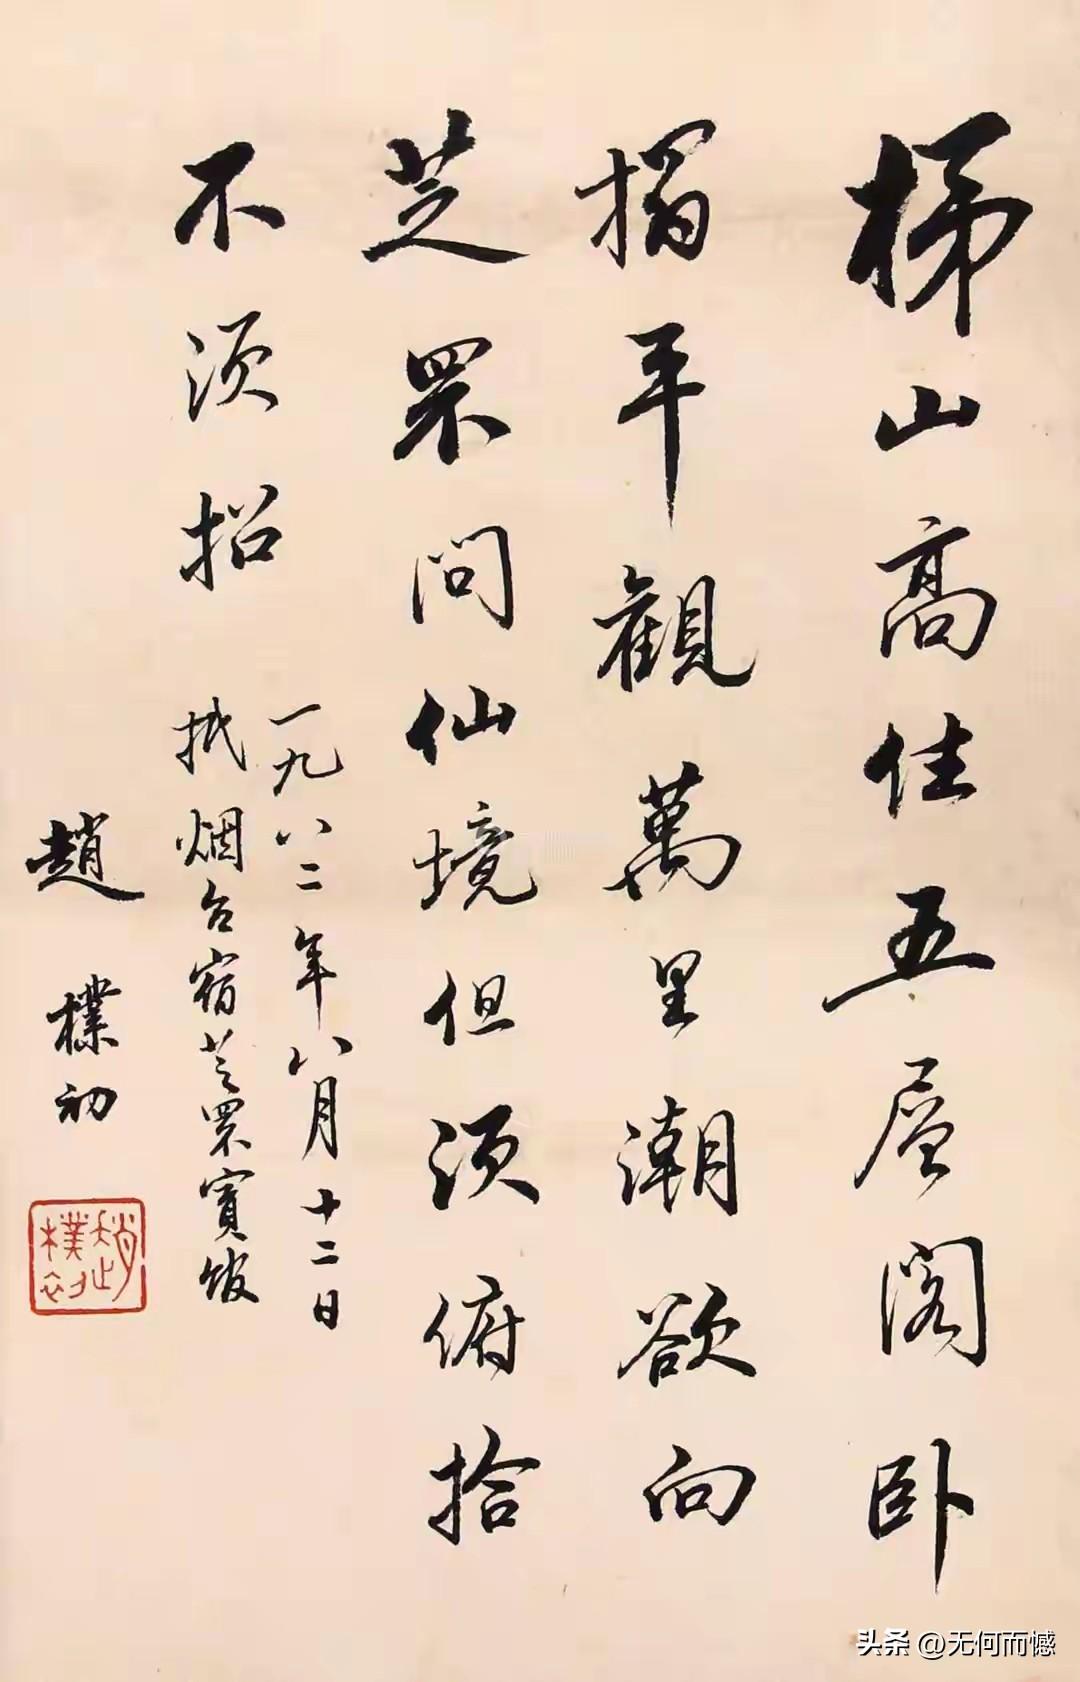 梯山高住五层阁卧
榻平觀萬里潮欲向
芝罘问仙境但须俯拾
不须招
一九八二年八月十二日
抵烟台宿芝罘賓馆
趙樸初
趙樸初
头条 @无何而憾